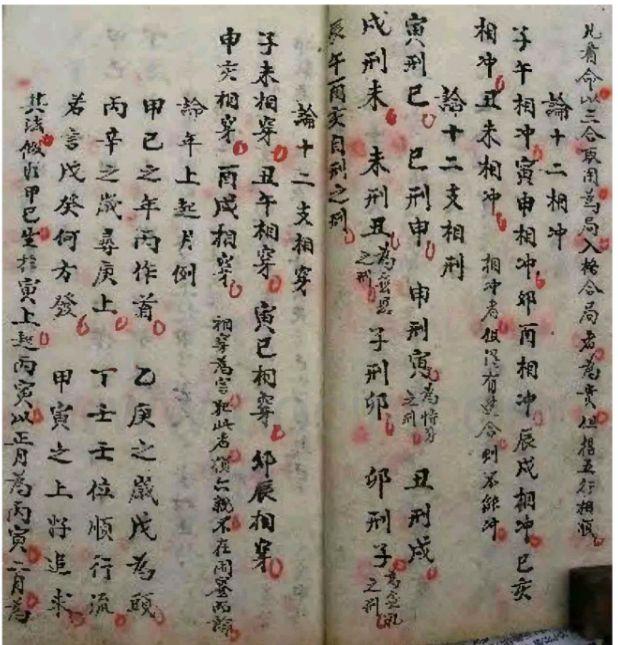 凡看命以三合取用為局入格合局者為貴但揩五行相順
論十二相冲
子午相冲寅申相冲卯酉相冲辰戌相冲巳亥
相冲丑未相冲 相冲者但得有合則不能冲
論十二支相刑
寅刑巳 巳刑申 申刑寅為恃势之刑 丑刑戌
戌刑未 未刑丑為之刑 子刑卯 卯刑子為無礼之刑
辰午酉亥自刑之刑
論十二支相穿
子未相穿丑午相穿寅巳相穿卯辰相穿
申亥相穿酉戌相穿 相穿為害犯此者六親不在
論年上起月例
甲己之年丙作首 乙庚之歲戊為頭
丙辛之歲尋庚上 丁壬壬位順行流
若言戊癸何方發 甲寅之上好追求
其法假如甲己生於寅上起丙寅以正月為丙寅二月為